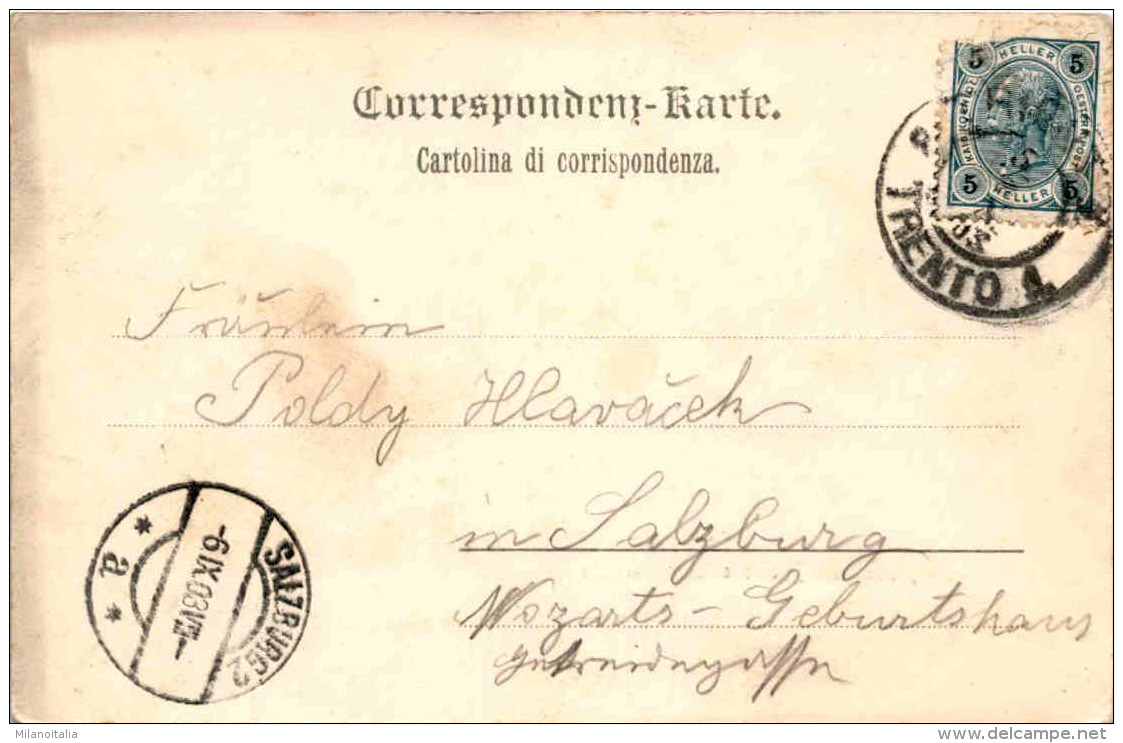 Correspondenz-Karte.
Cartolina di corrispondenza.
5 HELLER 5
KAIS. KOENIGL. OESTERR. POST
5 HELLER 5
TRENTO 1
03
Fräulein
Poldy Hlaváček
in Salzburg
Mozarts - Geburtshaus
Getreidegasse
SALZBURG 2
-6 IX 03 VIII-
* a *
Milanoitalia
delcampe.net